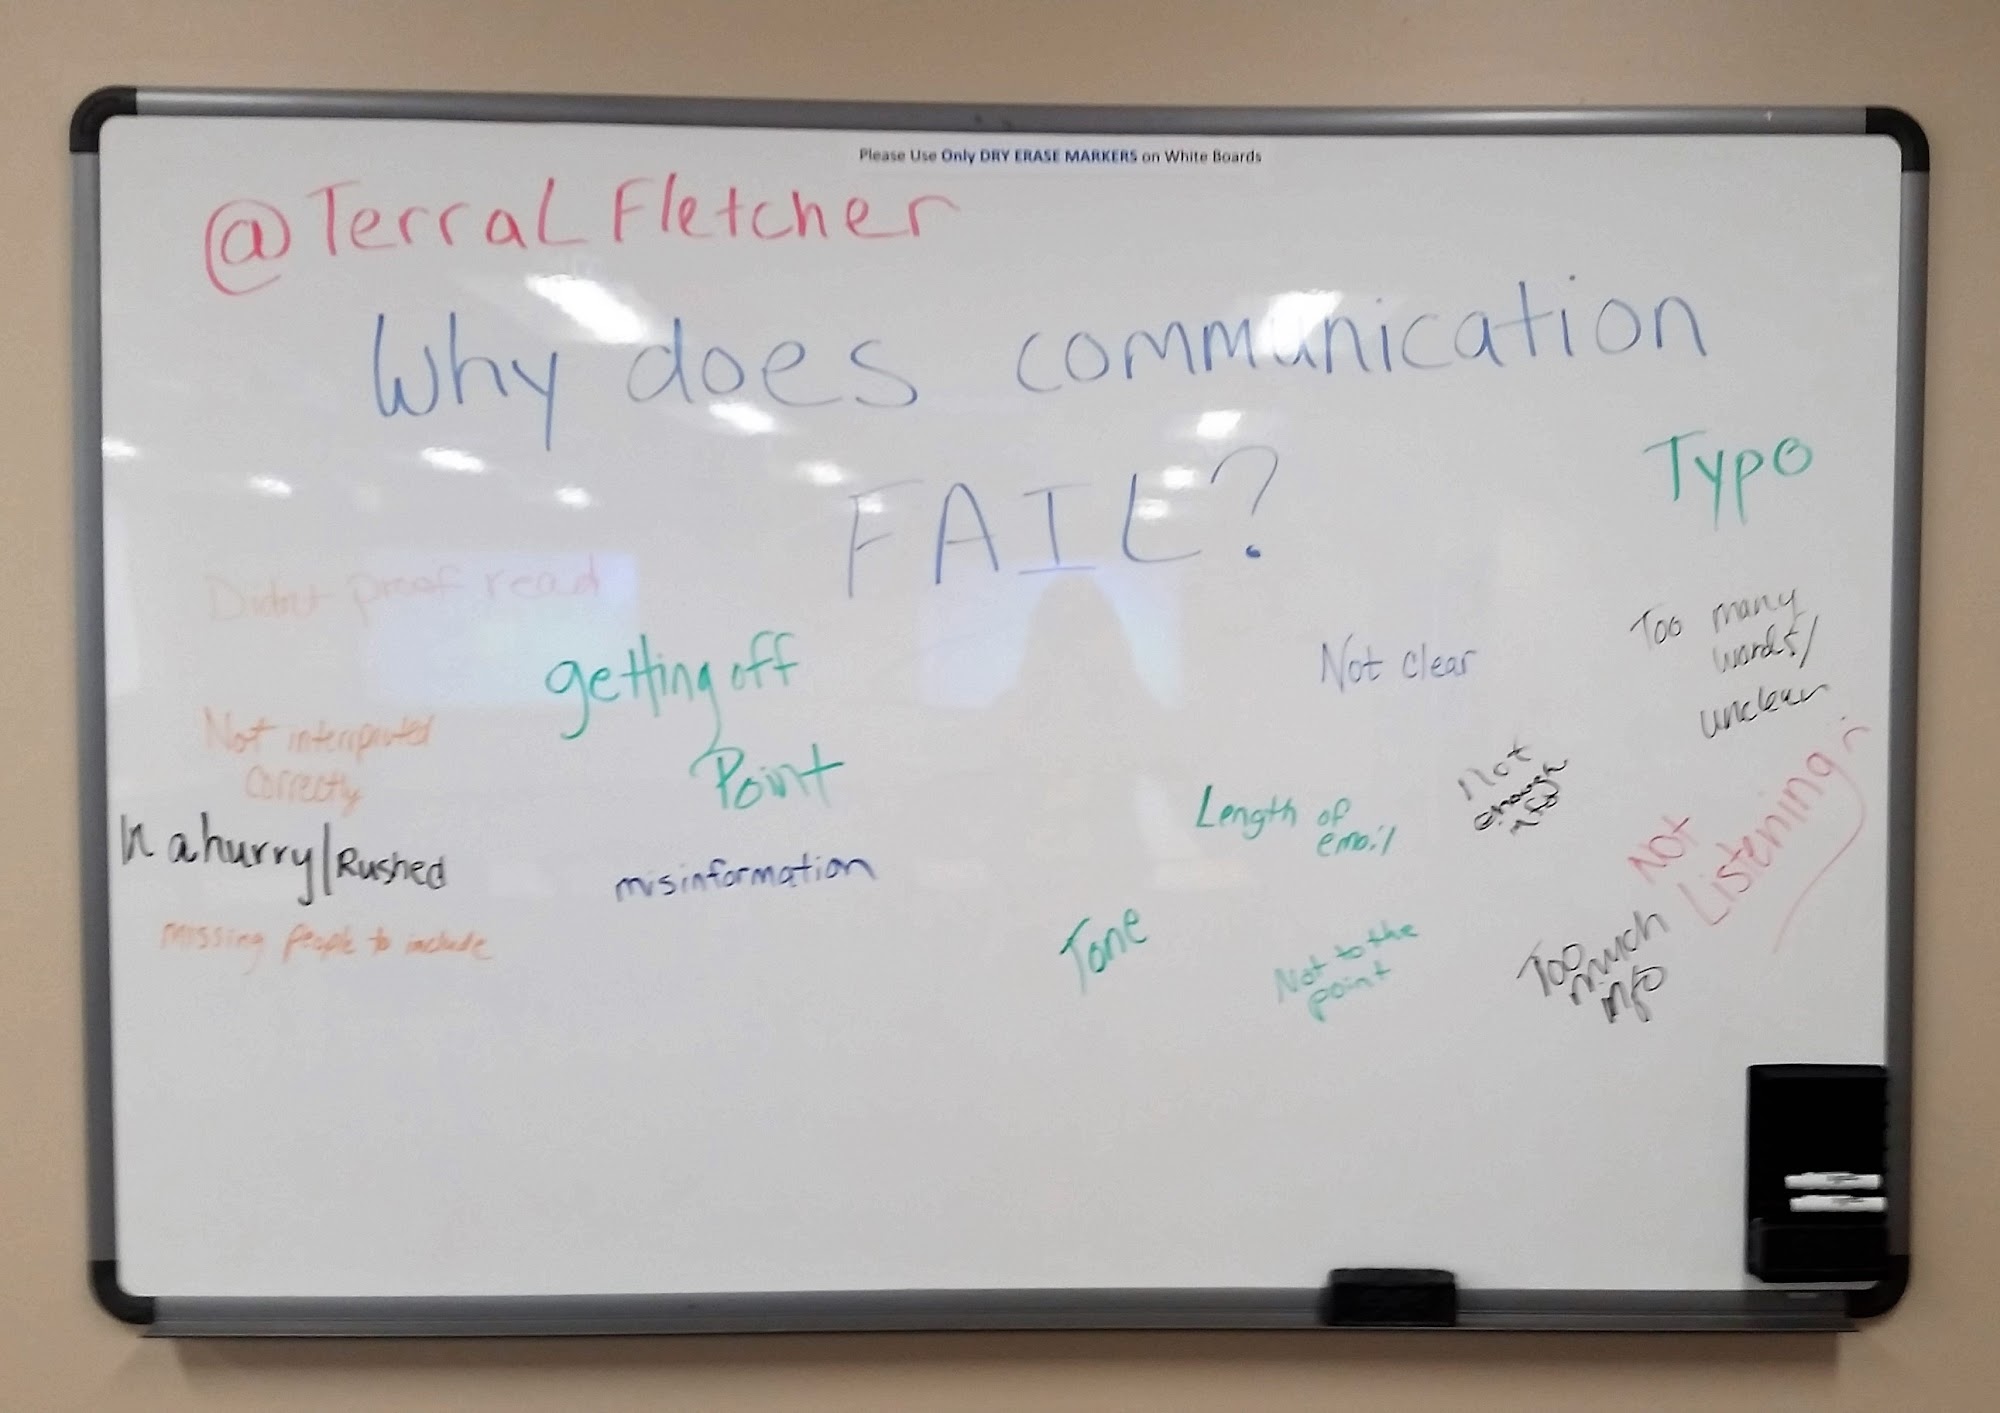 Please Use Only DRY ERASE MARKERS on White Boards
@TerraLFletcher
Why does communication
FAIL?
Typo
Didnt proof read
getting off
Point
Not clear
Too many
words/
unclear
Not interpruted
correctly
In a hurry/Rushed
missing people to include
misinformation
Length of
email
Not
enough
info
Not
Listening
Tone
Not to the
point
Too
much
info